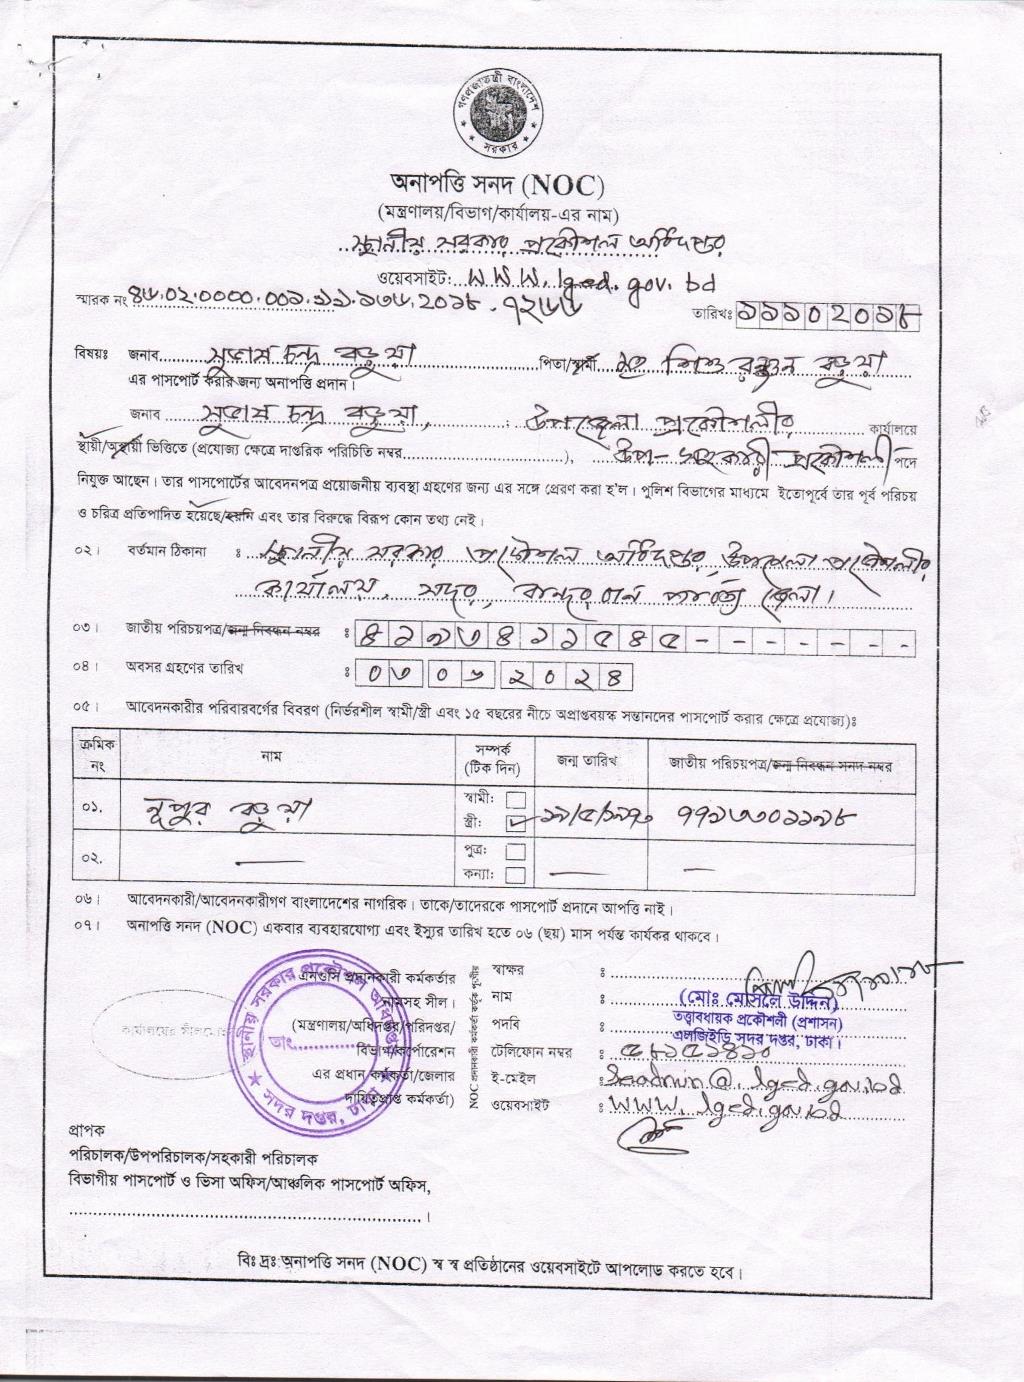 গণপ্রজাতন্ত্রী বাংলাদেশ
সরকার
অনাপত্তি সনদ (NOC)
(মন্ত্রণালয়/বিভাগ/কার্যালয়-এর নাম)
স্থানীয় সরকার প্রকৌশল অধিদপ্তর
ওয়েবসাইট: www.lged.gov.bd
স্মারক নং ৪৬.০২.০০০০.০০১.১১.১৩৫.২০১৮-৭২৬৬ তারিখঃ ১১১০২০১৮
বিষয়ঃ জনাব সুভাষ চন্দ্র বড়ুয়া পিতা/স্বামী মৃত শিশু রঞ্জন বড়ুয়া
এর পাসপোর্ট করার জন্য অনাপত্তি প্রদান।
জনাব সুভাষ চন্দ্র বড়ুয়া, উপজেলা প্রকৌশলীর কার্যালয়ে
স্থায়ী/অস্থায়ী ভিত্তিতে (প্রযোজ্য ক্ষেত্রে দাপ্তরিক পরিচিতি নম্বর....................), উপ-সহকারী প্রকৌশলী পদে
নিযুক্ত আছেন। তার পাসপোর্টের আবেদনপত্র প্রয়োজনীয় ব্যবস্থা গ্রহণের জন্য এর সঙ্গে প্রেরণ করা হ'ল। পুলিশ বিভাগের মাধ্যমে ইতোপূর্বে তার পূর্ব পরিচয়
ও চরিত্র প্রতিপাদিত হয়েছে/হয়নি এবং তার বিরুদ্ধে বিরূপ কোন তথ্য নেই।
০২। বর্তমান ঠিকানা ঃ স্থানীয় সরকার প্রকৌশল অধিদপ্তর, উপজেলা প্রকৌশলীর
কার্যালয়, সদর, বান্দরবান পার্বত্য জেলা।
০৩। জাতীয় পরিচয়পত্র/জন্ম নিবন্ধন নম্বর ঃ ৪১৯৩৪১১৫৪৫-------
০৪। অবসর গ্রহণের তারিখ ঃ ০৩০৬২০২৪
০৫। আবেদনকারীর পরিবারবর্গের বিবরণ (নির্ভরশীল স্বামী/স্ত্রী এবং ১৫ বছরের নীচে অপ্রাপ্তবয়স্ক সন্তানদের পাসপোর্ট করার ক্ষেত্রে প্রযোজ্য)ঃ
ক্রমিক নং নাম সম্পর্ক (টিক দিন) জন্ম তারিখ জাতীয় পরিচয়পত্র/জন্ম নিবন্ধন সনদ নম্বর
০১. নূপুর বড়ুয়া স্বামী: স্ত্রী: ✓ ৭৭১৩৩০১১৯৮
০২. — পুত্র: কন্যা: — —
০৬। আবেদনকারী/আবেদনকারীগণ বাংলাদেশের নাগরিক। তাকে/তাদেরকে পাসপোর্ট প্রদানে আপত্তি নাই।
০৭। অনাপত্তি সনদ (NOC) একবার ব্যবহারযোগ্য এবং ইস্যুর তারিখ হতে ০৬ (ছয়) মাস পর্যন্ত কার্যকর থাকবে।
স্থানীয় সরকার প্রকৌশল অধিদপ্তর
তাং
সদর দপ্তর, ঢাকা
এনওসি প্রদানকারী কর্মকর্তার
নামসহ সীল।
(মন্ত্রণালয়/অধিদপ্তর/পরিদপ্তর/
বিভাগ/কর্পোরেশন
এর প্রধান কর্মকর্তা/জেলার
দায়িত্বপ্রাপ্ত কর্মকর্তা)
কার্যালয়ের সীলমোহর
NOC প্রদানকারী কর্মকর্তা কর্তৃক পূরণীয়
স্বাক্ষর ঃ
নাম ঃ (মোঃ মোসলে উদ্দিন)
পদবি ঃ তত্ত্বাবধায়ক প্রকৌশলী (প্রশাসন)
এলজিইডি সদর দপ্তর, ঢাকা।
টেলিফোন নম্বর ঃ ৫৮১৫১৪১০
ই-মেইল ঃ seadmin@.lged.gov.bd
ওয়েবসাইট ঃ www.lged.gov.bd
প্রাপক
পরিচালক/উপপরিচালক/সহকারী পরিচালক
বিভাগীয় পাসপোর্ট ও ভিসা অফিস/আঞ্চলিক পাসপোর্ট অফিস,
....................।
বিঃ দ্রঃ অনাপত্তি সনদ (NOC) স্ব স্ব প্রতিষ্ঠানের ওয়েবসাইটে আপলোড করতে হবে।